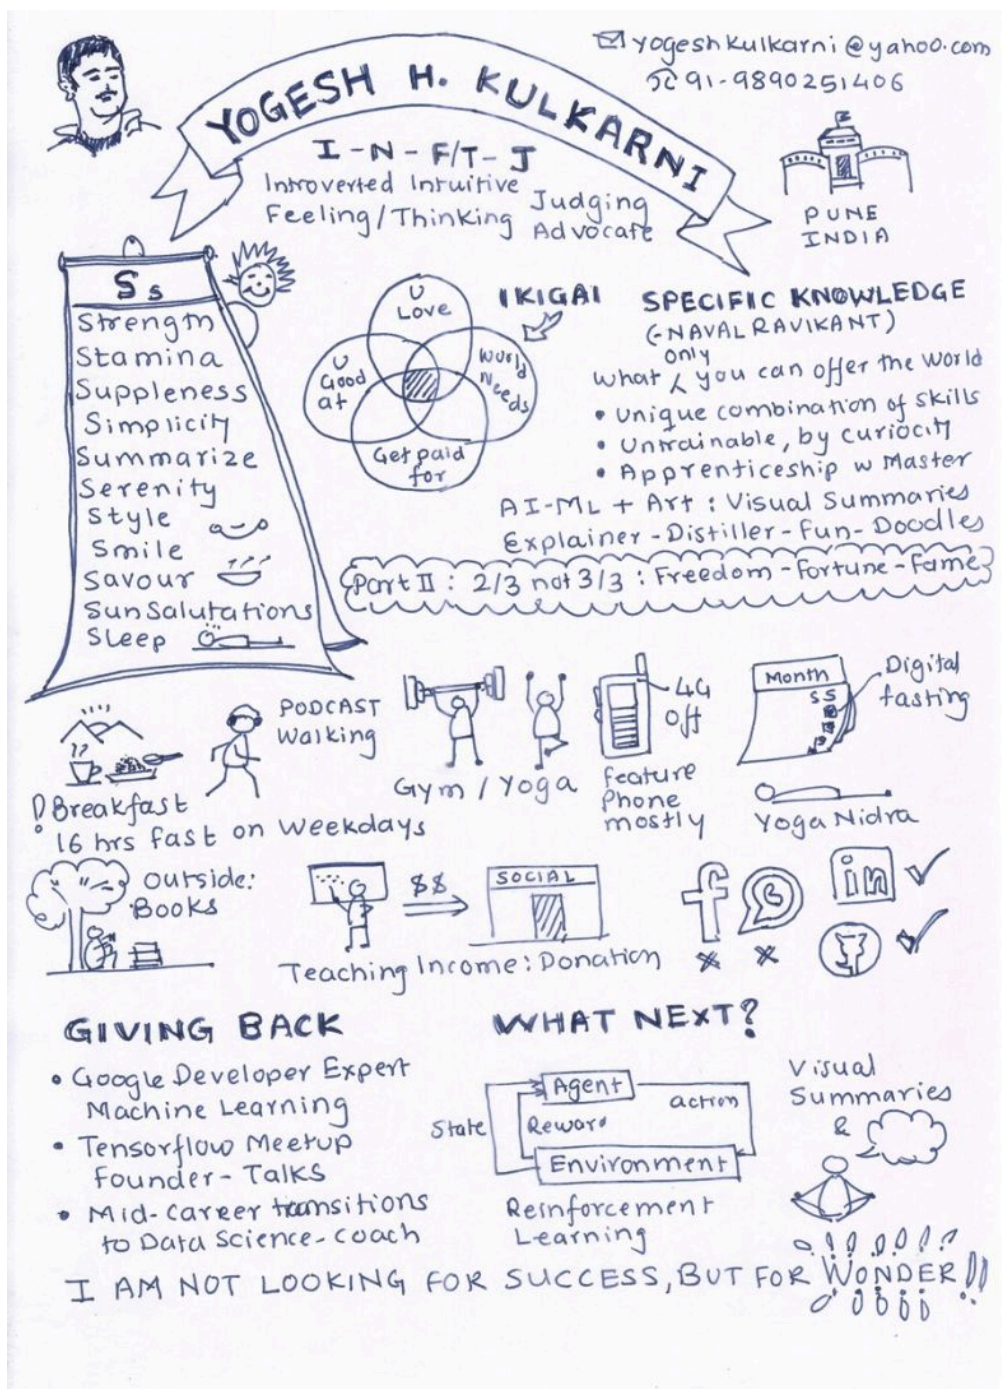 yogeshkulkarni@yahoo.com
91-9890251406
YOGESH H. KULKARNI
I-N-F/T-J
Introverted Intuitive
Feeling/Thinking
Judging
Advocate
PUNE
INDIA
Ss
Strength
Stamina
Suppleness
Simplicity
Summarize
Serenity
Style
Smile
Savour
Sun Salutations
Sleep
IKIGAI
U
Love
U
Good
at
World
Needs
Get paid
for
SPECIFIC KNOWLEDGE
(-NAVAL RAVIKANT)
only
what ⁁ you can offer the world
• Unique combination of skills
• Untrainable, by curiocity
• Apprenticeship w Master
AI-ML + Art : Visual Summaries
Explainer - Distiller - Fun - Doodles
Part II : 2/3 not 3/3 : Freedom - Fortune - Fame
Breakfast
16 hrs fast on weekdays
PODCAST
Walking
Gym / Yoga
4G
Off
Feature
Phone
mostly
Month
S S
Digital
fasting
Yoga Nidra
Outside:
Books
$$
SOCIAL
Teaching Income: Donation
f
in
GIVING BACK
• Google Developer Expert
Machine Learning
• Tensorflow Meetup
Founder - Talks
• Mid-career transitions
to Data Science - coach
WHAT NEXT?
Agent
action
State
Reward
Environment
Reinforcement
Learning
Visual
Summaries
&
I AM NOT LOOKING FOR SUCCESS, BUT FOR WONDER!!